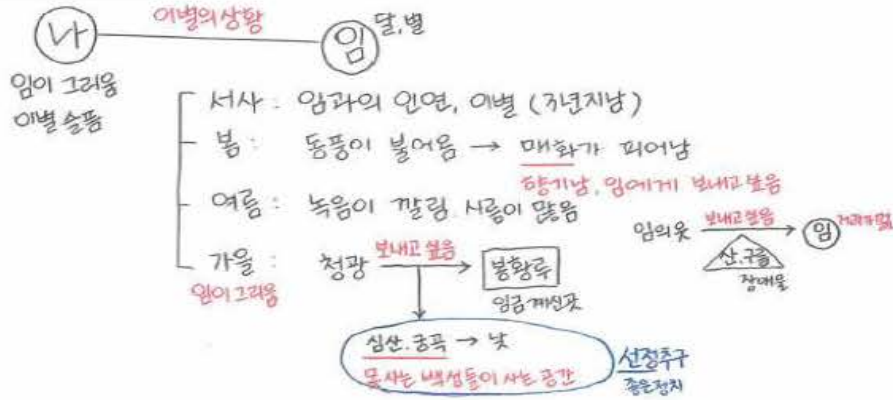 이별의 상황
나 임 달, 별
임이 그리움
이별 슬픔
서사 : 임과의 인연, 이별 (3년지남)
봄 : 동풍이 불어옴 → 매화가 피어남
향기남, 임에게 보내고 싶음
여름 : 녹음이 깔림, 시름이 많음
임의 옷 보내고싶음 → 임
산, 구름
장애물
가을 : 청광 보내고 싶음 → 봉황루
임이 그리움
임금 계신곳
심산.궁곡 → 낮
못사는 백성들이 사는 공간
선정추구
좋은정치